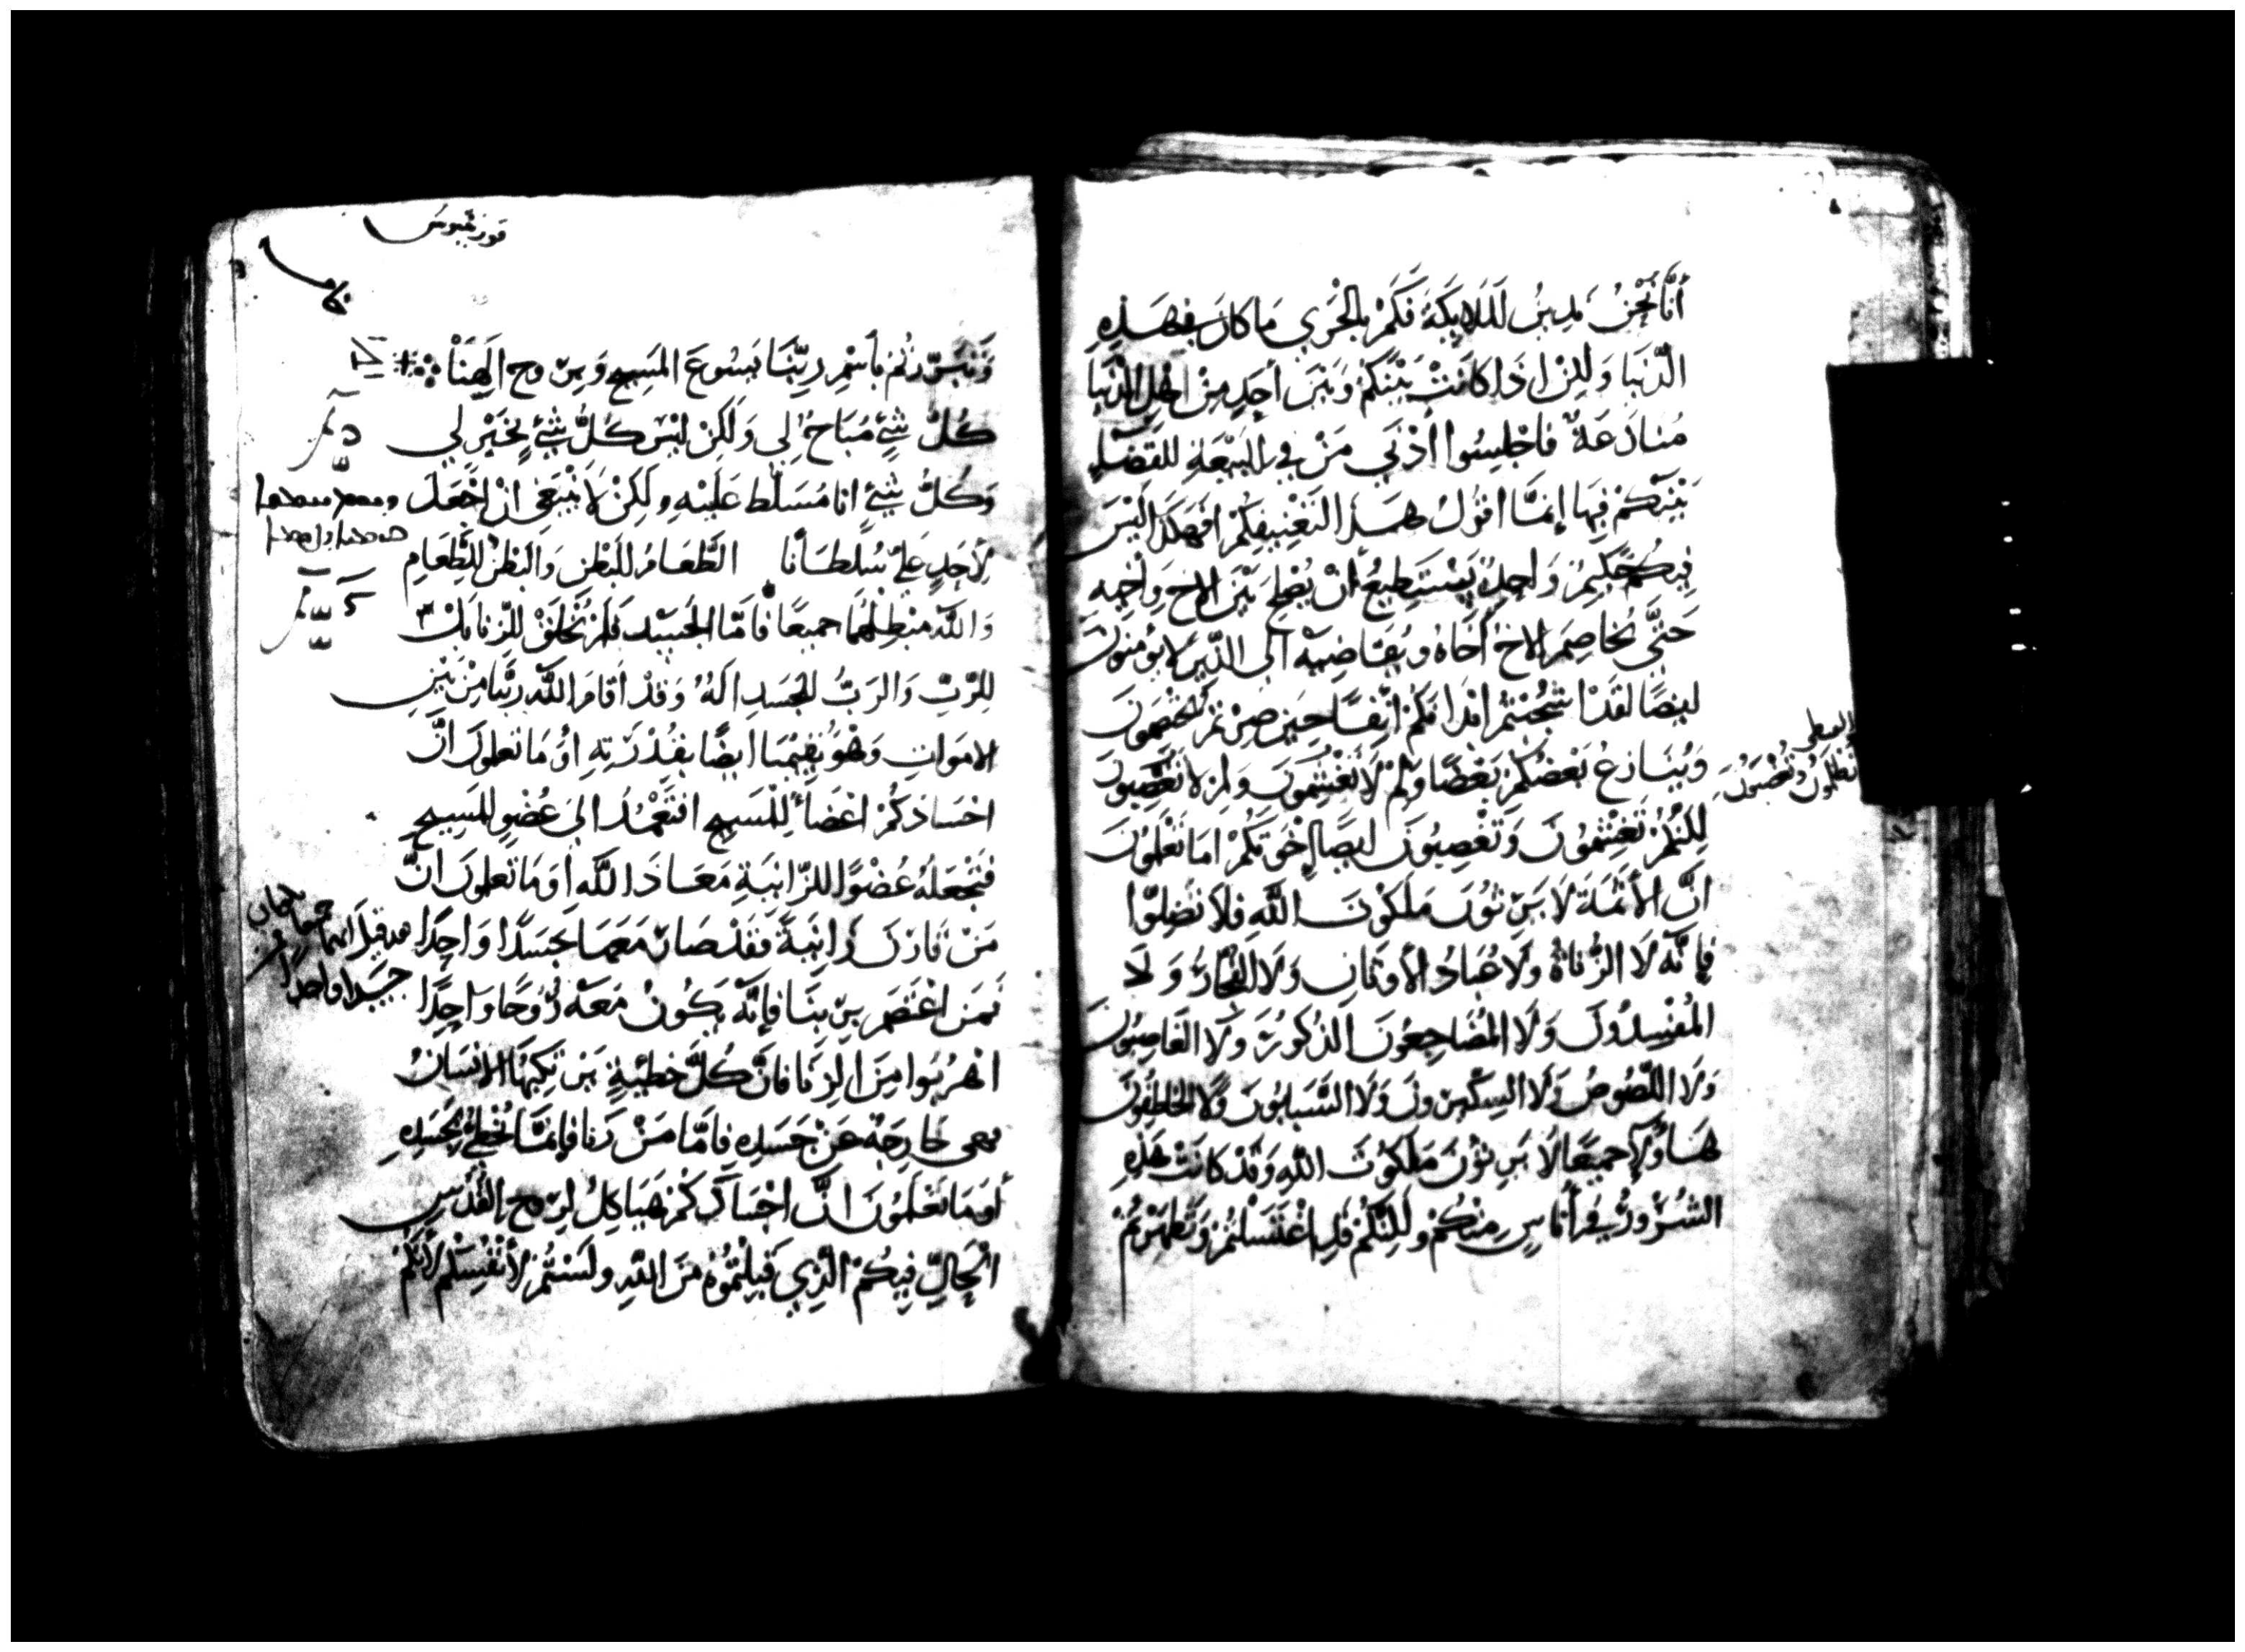 أنَّا نَحْنُ نَدِينُ لَلمَلَايِكَةَ فَكَمْ بالْحَرَي مَا كانَ في هَذِهِ
الدُّنيَا وَلكِنْ اذَا كانَتْ بَيْنَكُمْ وَبَيْنَ أحَدٍ مِنْ اهْلِ الدُّنيَا
مُنازَعَةٌ فاجْلِسُوا أدْنَي مَنْ في البِيْعَةِ للقضَاءِ
بَيْنَكُمْ فِيهَا إنمَّا اقُولُ هَذا التَعْنِيفِ لكُمْ افهَكَذا لَيْسَ
فِيكُمْ حَكِيمٌ وَاحِدٌ يَسْتَطِيعُ أنْ يُصْلِحَ بَيْنَ الاخِ وَأخِيهِ
حَتَّي يُخاصِمَ الاخُ أخَاهُ وَيُقاضِيهِ الَي الذِينَ لا يُؤمِنونَ
ايضًا لقَدْ شَجُبْتُمْ انفُسَكُمْ حِينَ صِرْتُمْ تَخْتَصِمُونَ
وَيُنَازِعُ بَعْضُكُمْ بَعْضًا وَلِمْ لا تُغْشَمُونَ وَلِمْ لا تُغْصَبُونَ
لَكِنَّكُمْ تَغْشِمُونَ وَتَغْصِبُونَ ايضًا إخْوَتَكُمْ امَا تَعْلَمُونَ
انَّ الأثَمَةَ لا يَرِثُونَ مَلَكُوتَ اللَّهِ فلا تَضِلّوا
فإنَّه لَا الزُّناةُ وَلَا عُبّادُ الأوثَانِ وَلَا الفُجّارُ وَلَا
المُفْسِدُونَ وَلَا المُضَاجِعُونَ الذُكُورَ وَلَا الغَاصِبُونَ
وَلَا اللُّصُوصُ وَلَا السِكّيرُونَ وَلَا السَّبابُونَ وَلَا الخاطِفُونَ
هَاؤُلَاءِ جَمِيعًا لَا يَرِثُونَ مَلَكُوتَ اللَّهِ وَقَدْ كانَتْ هَذِهِ
الشُرُورُ في أُناسٍ مِنْكُمْ وَلَكِنَّكُمْ قَدِ اغْتَسَلْتُمْ وَتَطَهَّرْتُمْ
تُظلَمُونَ وَتُغْصَبُونَ
قورنثيوس
وَتَبَرَّرْتُمْ بأسْمِ رَبِّنَا يَسُوعَ المَسِيحِ وَبِرُوحِ الَهِنَا
كُلُّ شَيْءٍ مُبَاحٌ لِي وَلَكِنْ لَيْسَ كُلُّ شَيْءٍ بِخَيْرٍ لِي
وَكُلُّ شَيْءٍ انا مُسَلَّط عَلَيْهِ ولَكِنْ لَا يَنْبَغِي انْ اجْعَلَ
لأحَدٍ عَلَيَّ سُلطَانًا الطَّعَامُ للبَطْنِ وَالبَطْنُ للطَّعَامِ
وَاللَّه مُبْطِلُهُمَا جَميعًا فأمَّا الجَسَدُ فَلَمْ يُخْلَقْ للزِنا بَلْ
لِلرّبِّ وَالرَبُّ للجَسَدِ الَهٌ وَقَدْ أقَامَ اللَّه رَبَّنا مِنْ بَيْنِ
الامَواتِ وَهْوَ يُقِيمُنا ايضًا بِقُدْرَتِهِ أوَ مَا تَعلمونَ انَّ
اجْسَادَكُمْ اعْضَاءٌ لِلْمَسِيحِ افَتَعْمِدُ الَي عُضْوٍ للمَسِيحِ
فَتَجْعَلُهُ عُضْوًا للزّانِيَةِ مَعَاذَ اللَّه أوَ مَا تَعْلَمونَ انَّ
مَنْ قَارَنَ زَانِيَةً فَقَدْ صَارَ مَعَهَا جَسَدًا وَاحِدًا
فَمَن اعْتَصَمَ بِرَبِّنَا فإنَّه يَكُونُ مَعَهْ رُوحًا وَاحِدًا
اهْرُبُوا مِنَ الزِنَا فانَّ كُلَّ خَطِيئَةٍ يَرْتَكِبُهَا الانسَانُ
فهي خَارِجَةٌ عَنْ جَسَدِهِ فأمَّا مَنْ زَنا فإنمَّا يُخْطِئُ بجَسَدِهِ
أوَمَا تَعْلَمُونَ انَّ اجْسَادَكُمْ هَيَاكِلُ لِرُوحِ القُدُسِ
الحَالِّ فِيكُمْ الَّذِي قَبِلْتُمُوهُ مِنَ اللَّهِ ولَسْتُمْ لأنْفُسِكُمْ لأنَّكُمْ
قد قيل انهما جميعا يكونان
جَسَدا واحدًا